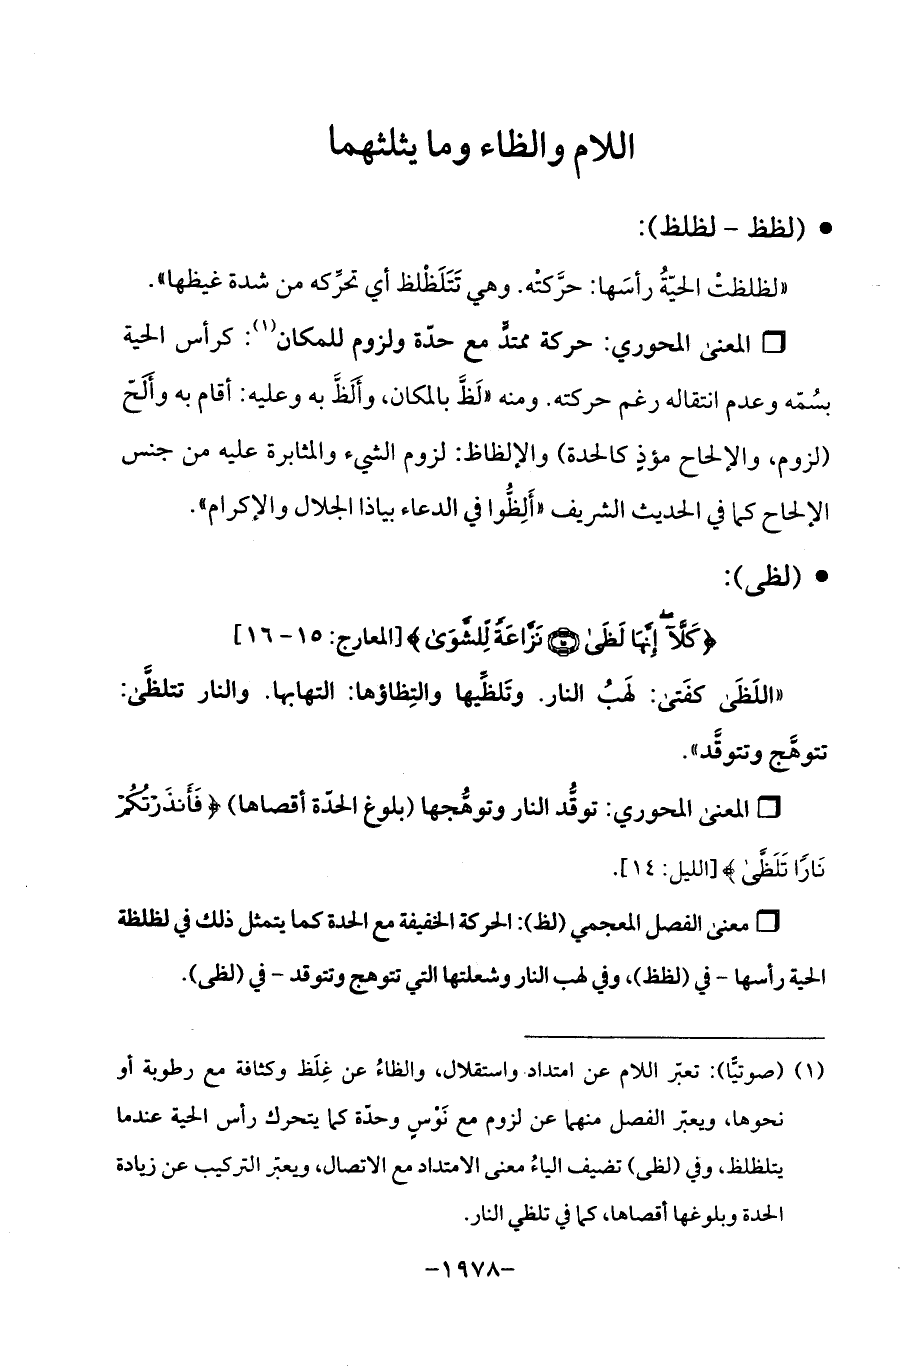 اللام والظاء وما يثلثهما
• (لظظ – لظلظ):
«لظلظتْ الحيّةُ رأسَها: حرَّكتْه. وهي تَتَلَظْلظ أي تحرِّكه من شدة غيظها».
❒ المعنى المحوري: حركة ممتدٍّ مع حدّة ولزوم للمكان(١): كرأس الحية
بسُمّه وعدم انتقاله رغم حركته. ومنه «لَظَّ بالمكان، وأَلَظَّ به وعليه: أقام به وأَلَحّ
(لزوم، والإلحاح مؤذٍ كالحدة) والإلظاظ: لزوم الشيء والمثابرة عليه من جنس
الإلحاح كما في الحديث الشريف «أَلِظُّوا في الدعاء بياذا الجلال والإكرام».
• (لظى):
﴿كَلَّآۖ إِنَّهَا لَظَىٰ ۝١٥ نَزَّاعَةً لِّلشَّوَىٰ﴾ [المعارج: ١٥–١٦]
«اللَظَى كفَتى: لَهَبُ النار. وتَلظِّيها والتِظاؤها: التهابها. والنار تتلظَّى:
تتوهَّج وتتوقَّد».
❒ المعنى المحوري: توقُّد النار وتوهُّجها (بلوغ الحدّة أقصاها) ﴿فَأَنذَرْتُكُمْ
نَارًا تَلَظَّىٰ﴾ [الليل: ١٤].
❒ معنى الفصل المعجمي (لظ): الحركة الخفيفة مع الحدة كما يتمثل ذلك في لظلظة
الحية رأسها – في (لظظ)، وفي لهب النار وشعلتها التي تتوهج وتتوقد – في (لظى).
(١) (صوتيًّا): تعبّر اللام عن امتداد واستقلال، والظاءُ عن غِلَظ وكثافة مع رطوبة أو
نحوها، ويعبّر الفصل منهما عن لزوم مع نَوْسٍ وحدّة كما يتحرك رأس الحية عندما
يتلظلظ، وفي (لظى) تضيف الياءُ معنى الامتداد مع الاتصال، ويعبّر التركيب عن زيادة
الحدة وبلوغها أقصاها، كما في تلظي النار.
–١٩٧٨–